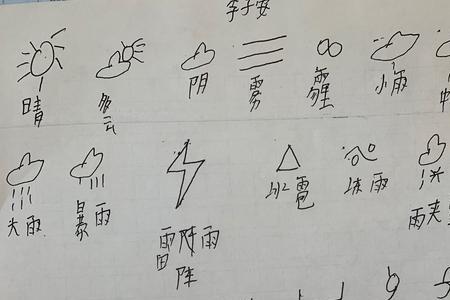 李子安
晴 多云 阴 雾 霾 小雨 中
大雨 暴雨 雷阵雨 冰雹 冻雨 雨夹